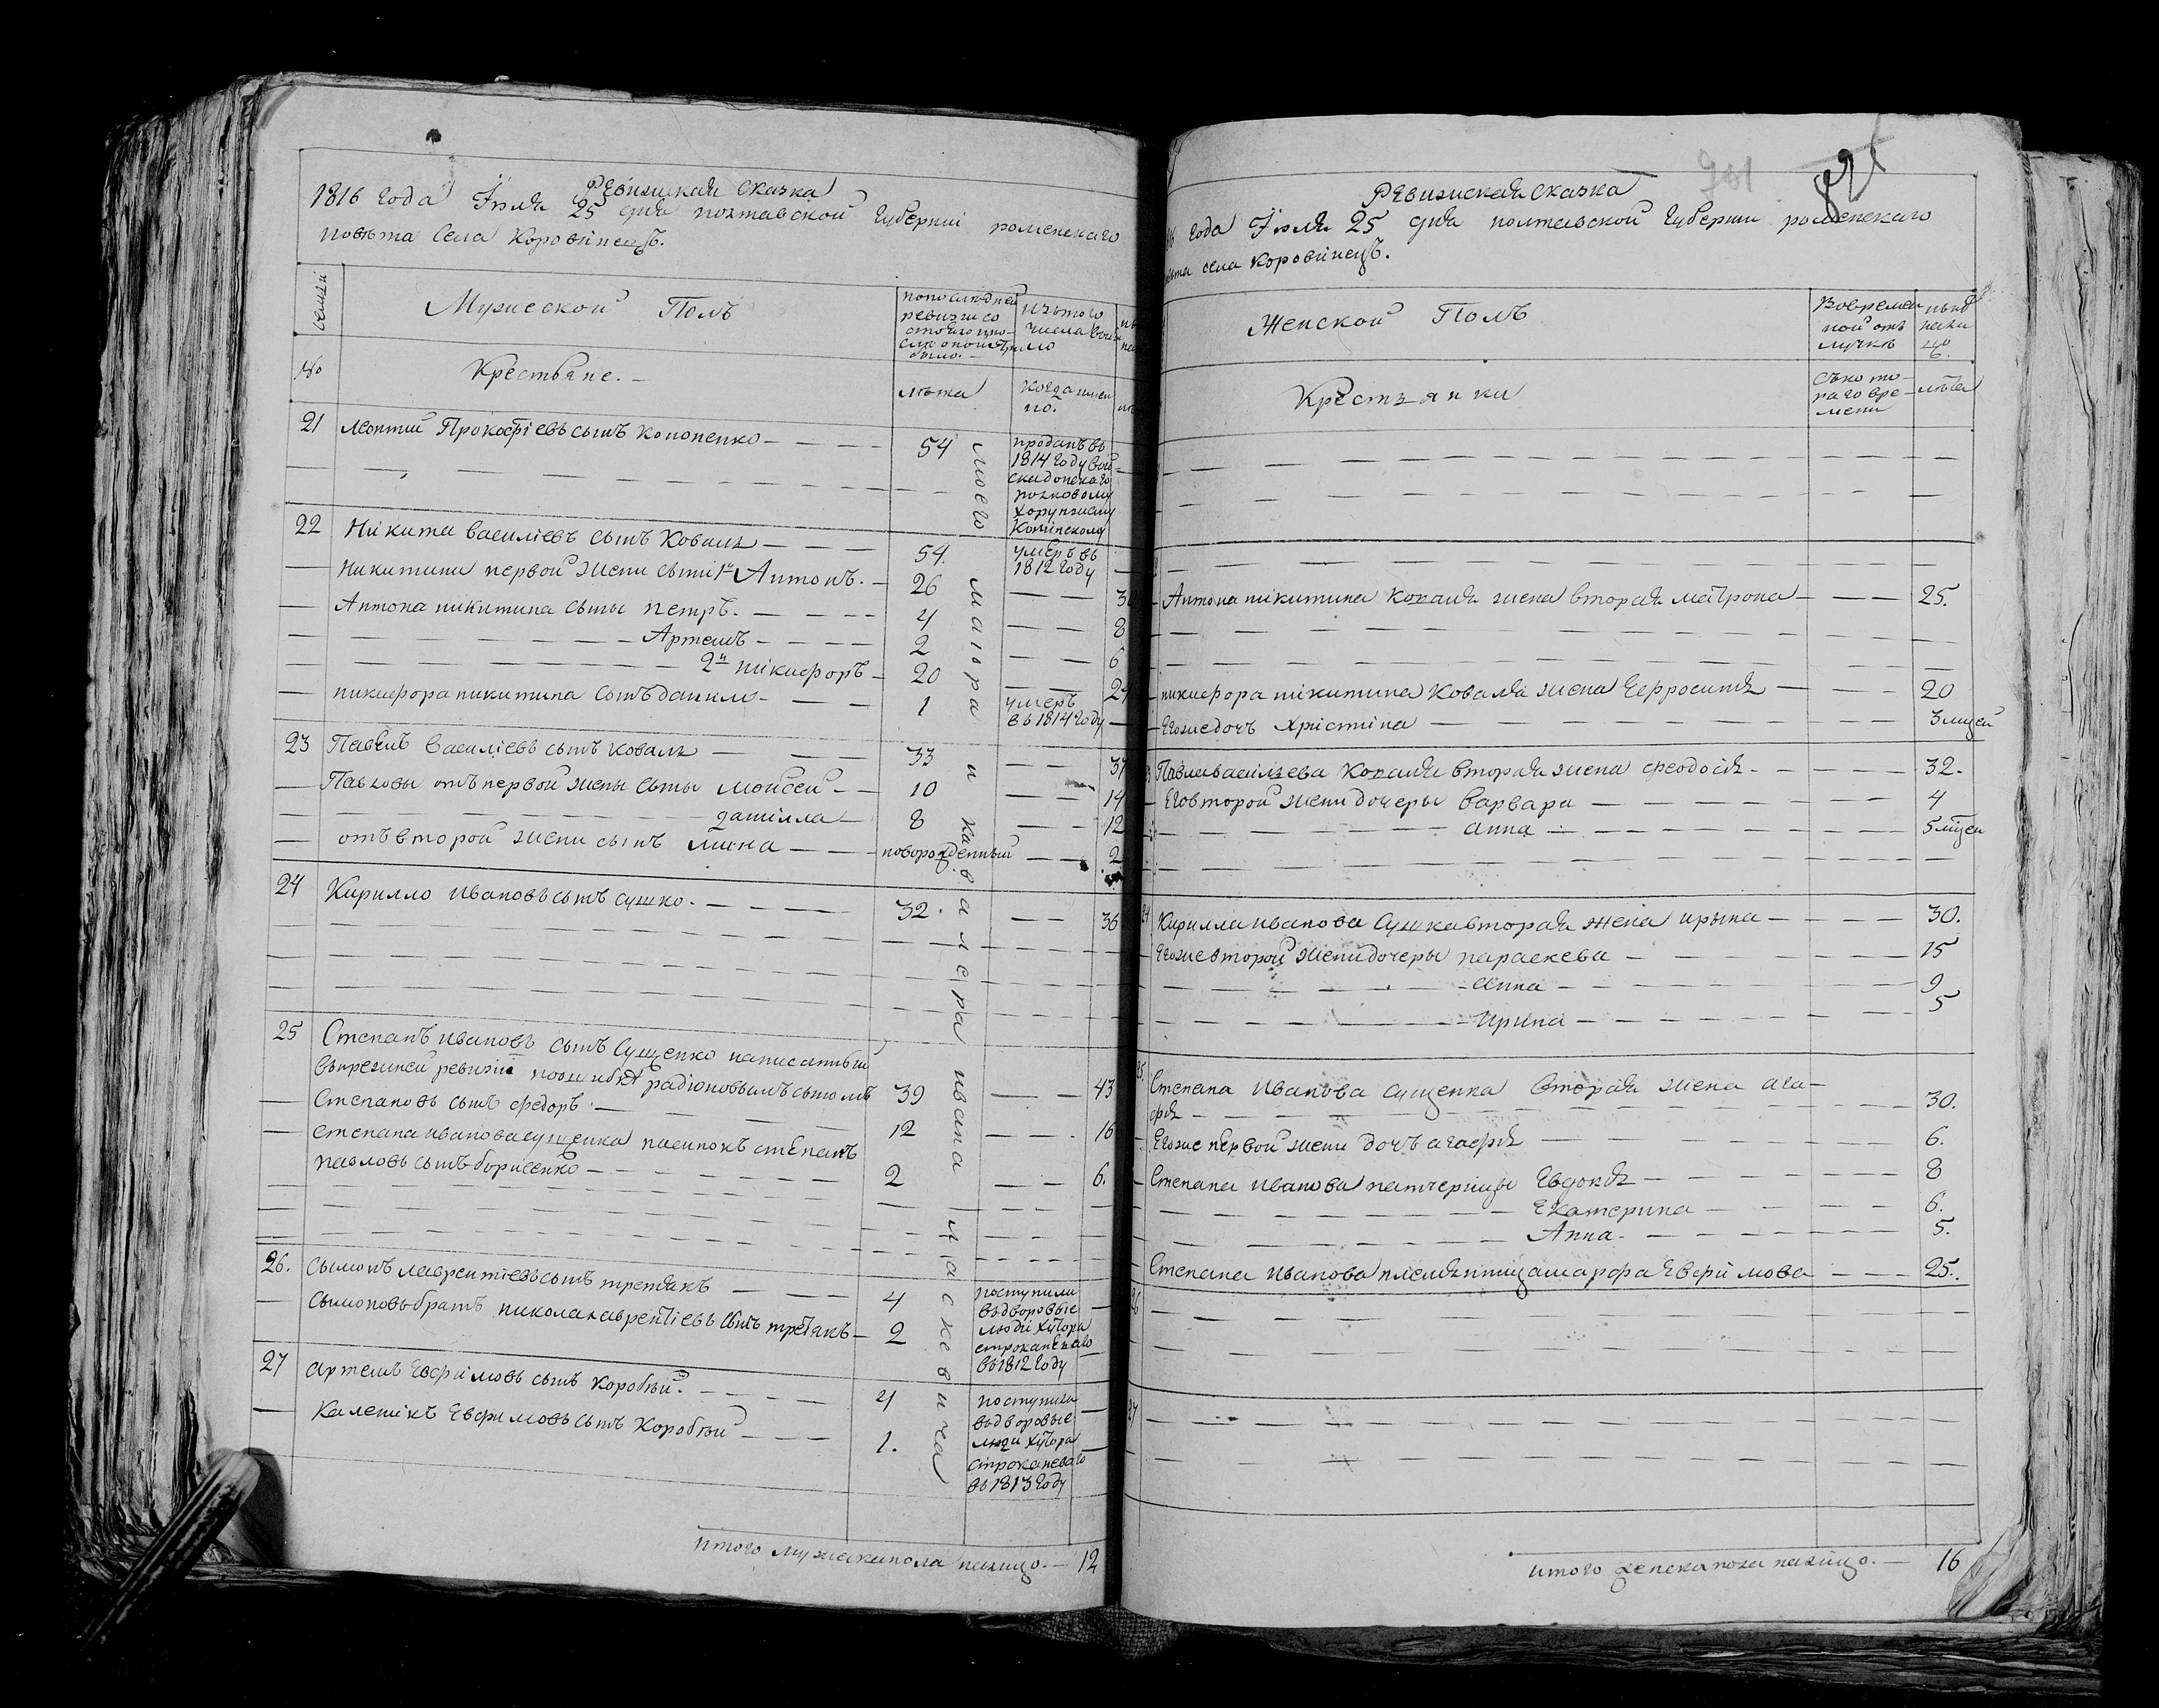 Ревизиская сказка
1816 года Іюля 25 дня полтавской Губерниі роменскаго
повѣта села Коровінецъ.
семьи
Мужеской Полъ
попоследней ревизіи со
изътого числа
№
Крестьяне. —
лѣта
когда имен но.
21 Леонтий Прокофіевъ сынъ кононенко — — — — 54
проданъ въ
1814 году вой
ска донскаго
полковому
хорунжему
22 Никита василіевъ сынъ Коваль — — — 54.
умеръ въ
1812 году
— Никитини первой жени сыни 1й Антонъ. — 26 — —
— Антона никитина сыны петръ. — — — 4 — — 8
— — — — — Артемъ — — — — 2 — — 6
— — — — — 2й никифоръ — 20 — —
— никифора никитина сынъ данило — — — 1
умеръ
въ 1814 году —
23 Павелъ василіевъ сынъ коваль — — — 33 — — 37
— Павловы отъ первой жены сыны Мойсей — — 10 — — 14
— — — — — данілла — 8 — — 12
— отъ второй жени сынъ мина — — — новорожденный — — 2
24 Кирилло ивановъ сынъ сушко. — — — — 32. — — 36
25 Степанъ ивановъ сынъ Сущенко написанный
въ прежней ревизіи по ошибкѣ радіоновымъ сыномъ 39 — — 43
— Степановъ сынъ федоръ — — — — 12 — — — 16
— степана иванова сущенка пасинокъ степанъ
павловъ сынъ борисенко — — — — — 2 — — 6.
26. Сымонъ лаврентіевъ сынъ третякъ — — — 4
поступили
въ дворовые
люди хутора
въ 1812 году
— Сымоновъ братъ никола лаврентіевъ сынъ третякъ — 2
27 Артемъ Евфимовъ сынъ коробъй. — — — 4
поступили
въ дворовые
люди хутора
въ 1813 году
— Каленикъ Евфимовъ сынъ Коробъй — — — 1.
моего маіора и кавалера ивана Маскевича
итого мужеска пола налицо. — 12
Ревизиская сказка
года Іюля 25 дня полтавской Губернии роменскаго
села коровінецъ.
Женской Полъ
Вовремен
ной отъ
лучкѣ
нынѣ
нали
цо
Крестьянки
Съ кото —
раго вре —
мени
лѣта
— Антона никитина коваля жена вторая матрона — — — 25.
— никифора никитина Коваля жена Ефросинія — — — 20
— Егоже дочь христина — — — 3 мцей
Павла василіева коваля вторая жена феодосія — — — 32.
— Его второй жени дочеры варвара — — — 4
— — — анна — — — 5 мцей
24 Кирилла иванова Сушка вторая жена ирына — — — 30.
— Егоже второй жени дочеры параскева — — — 15
— — — анна — — — 9
— — — Ирина — — — 5
25. Степана Иванова сущенка вторая жена ага —
фія — — — 30.
Егоже первой жени дочь агафія — — — 6.
— Степана иванова патчерицы Евдокія — — — 8
— — — Екатерина — — — 6.
— — — Анна. — — — 5.
Степана Иванова племянница марфа Евфимова — — — 25.
26
27
итого женска пола налицо. — 16